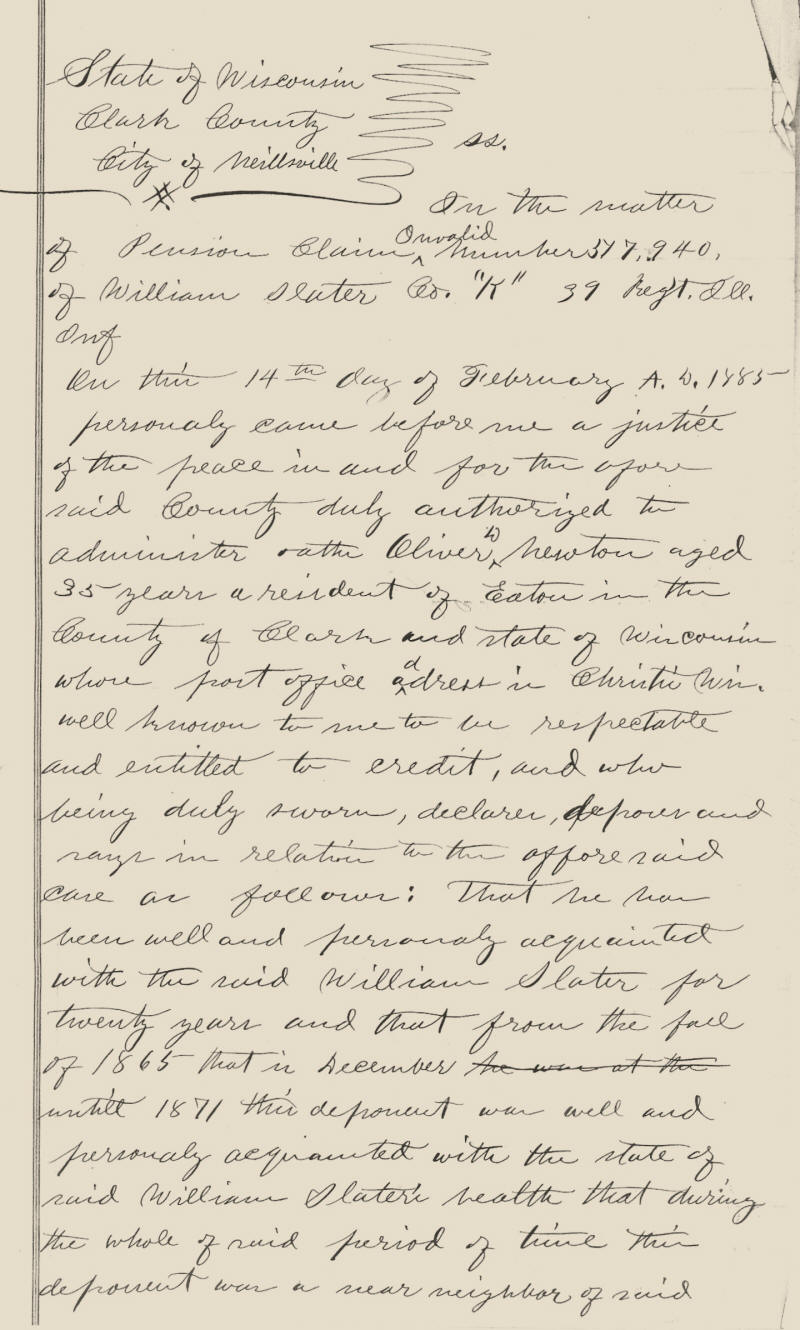 State of Wisconsin
Clark County
City of Neillsville
ss.
In the matter
of Pension Claim Invalid Number 517,940,
of William Slater Co. "K" 39 Regt. Ill.
Inf
On this 14th day of February A. D. 1885
personaly came before me a justice
of the peace in and for the afore
said County duly authorized to
administer oaths Oliver W Newton aged
35 years a resident of Eaton in the
County of Clark and state of Wisconsin
whose post office address is Christie Wis.
well known to me to be respectable
and entitled to credit, and who
being duly sworn, declares, deposes and
says in relation to the afforesaid
case as follows: That he has
been well and personaly acquainted
with the said William Slater for
twenty years and that from the fall
of 1865 that is December he was at the
untill 1871 this deponent was well and
personaly acquainted with the state of
said William Slater's health that during
the whole of said period of time this
deponent was a near neighbor of said